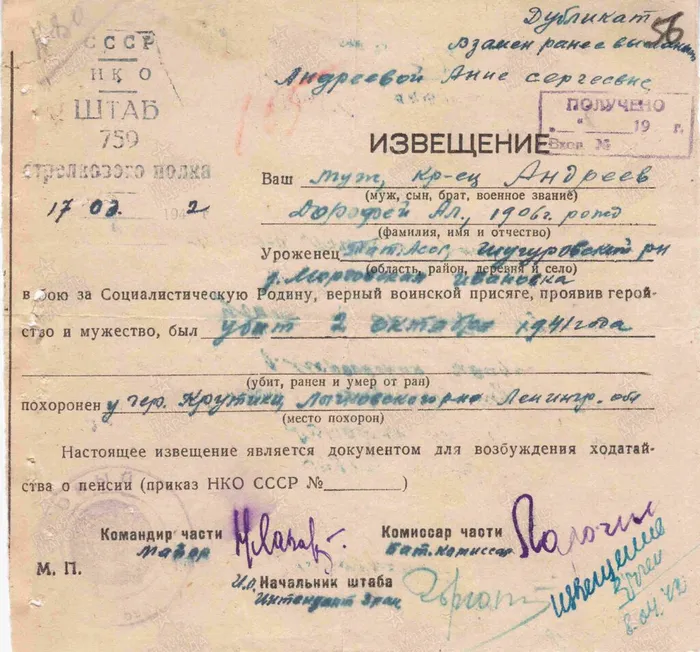 Дубликат
56
взамен ранее высланн
СССР
НКО
ШТАБ
759
стрелкового полка
17 03 194 2
Андреевой Анне Сергеевне
ПОЛУЧЕНО
„ “ 19 г.
Вход. №
ИЗВЕЩЕНИЕ
Ваш муж, кр-ец Андреев
(муж, сын, брат, военное звание)
Дорофей Ал., 1906г. рожд
(фамилия, имя и отчество)
Уроженец Тат. Асср, Шугуровский рн
(область, район, деревня и село)
д. Мордовская Ивановка
в бою за Социалистическую Родину, верный воинской присяге, проявив герой-
ство и мужество, был убит 2 октября 1941 года
(убит, ранен и умер от ран)
похоронен у дер. Крутики, Лычковского рна Ленингр. обл
(место похорон)
Настоящее извещение является документом для возбуждения ходатай-
ства о пенсии (приказ НКО СССР № )
Командир части
майор
Комиссар части
Бат. комиссар
М. П.
И.О. Начальник штаба
Интендант 3 ранг
извещение
8.04.42